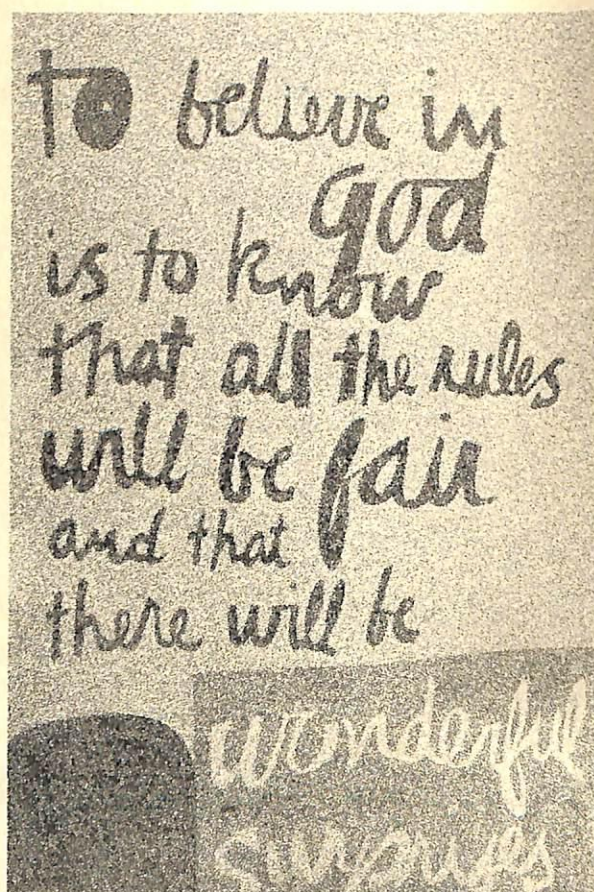 to believe in
God
is to know
that all the rules
will be fair
and that
there will be
wonderful
surprises